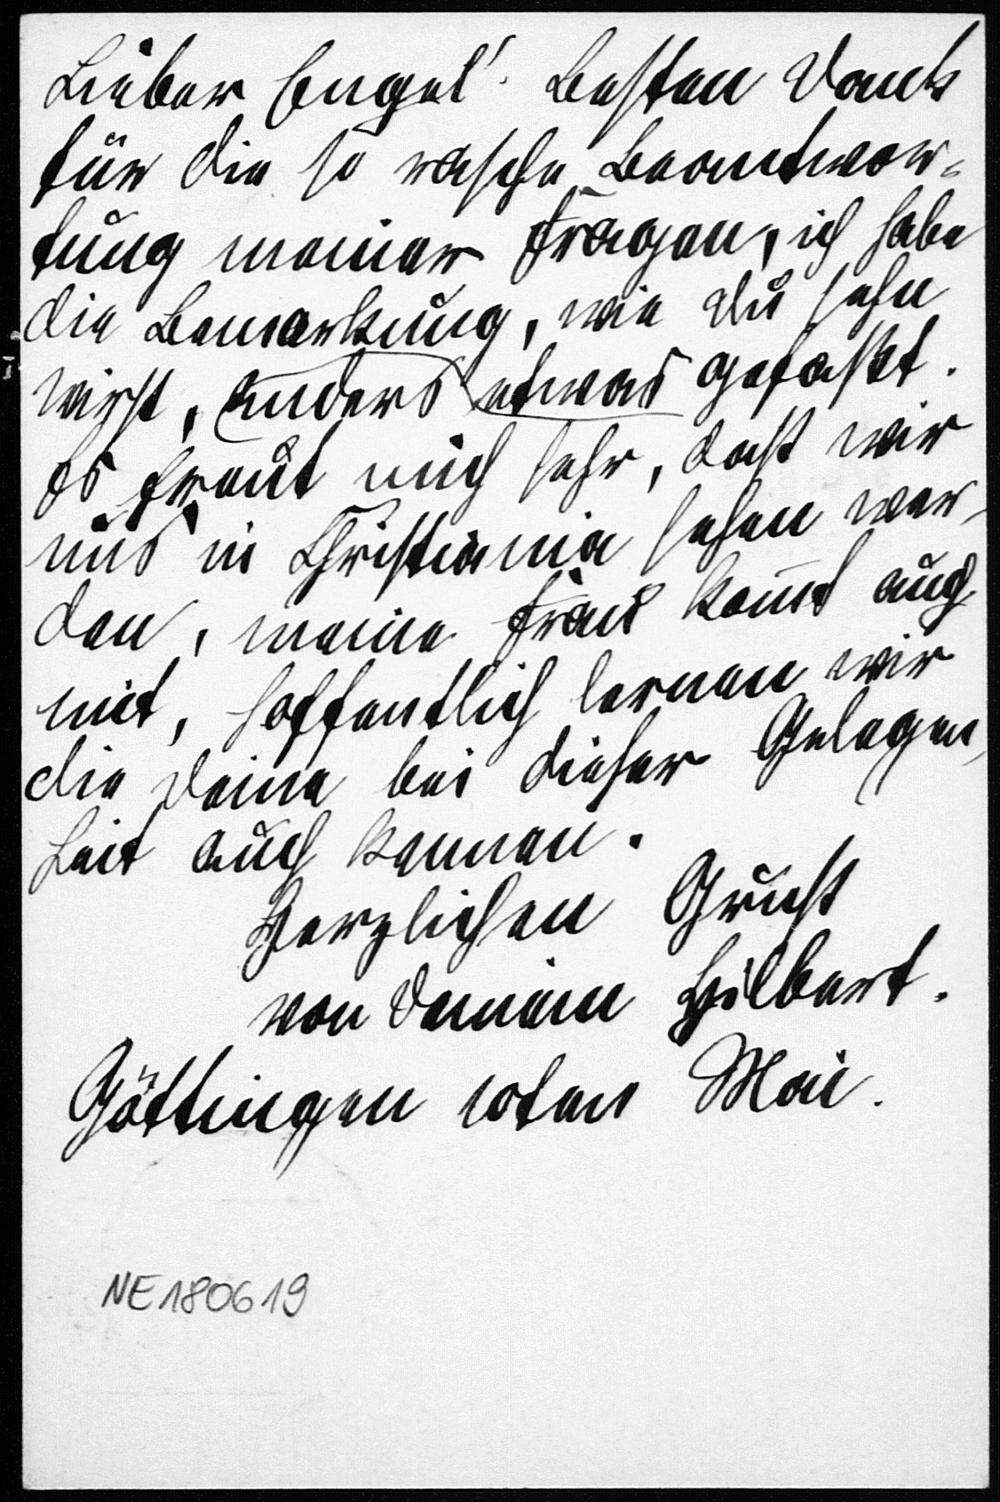 Lieber Engel! Besten Dank
für die so rasche Beantwor=
tung meiner Fragen, ich habe
die Bemerkung, wie Du sehn
wirst, anders etwas gefaßt.
Es freut mich sehr, daß wir
uns in Christiania sehen wer-
den, meine Frau kom̅t auch
mit, hoffentlich lernen wir
die Deine bei dieser Gelegen-
heit auch kennen.
Herzlichen Gruß
von Deinem Hilbert.
Göttingen 10ten Mai.
NE180619